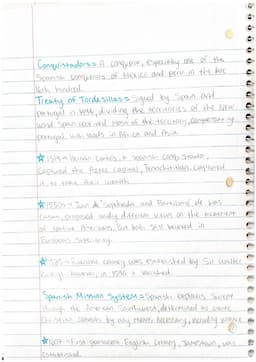 Conquistadors = A conqueror, especially one of the
Spanish conquerors of Mexico and Peru in the
16th hundred.
Treaty of Tordesillas = Signed by Spain and
Portugal in dividing the territories of the New
World. Spain received most of the territory, compensating
Portugal with lands in Africa and Asia.
1519 - Hernán Cortés, a Spanish conquistador,
captured the Aztec capital, Tenochtitlan. captured
it to take their wealth
1550s - Juan de Sepúlveda, and Bartolomé de Las
Casas, proposed widely different views on the treatment
of Native Americans. But both still believed in
European superiority.
colony was established by Sir Walter
however, in 1590 it vanished.
Spanish Mission System = Spanish explorers swept
through the American Southwest, determined to create
Christian converts by any means necessary, including violence
1607 - First permanent English colony, Jamestown, was
established.